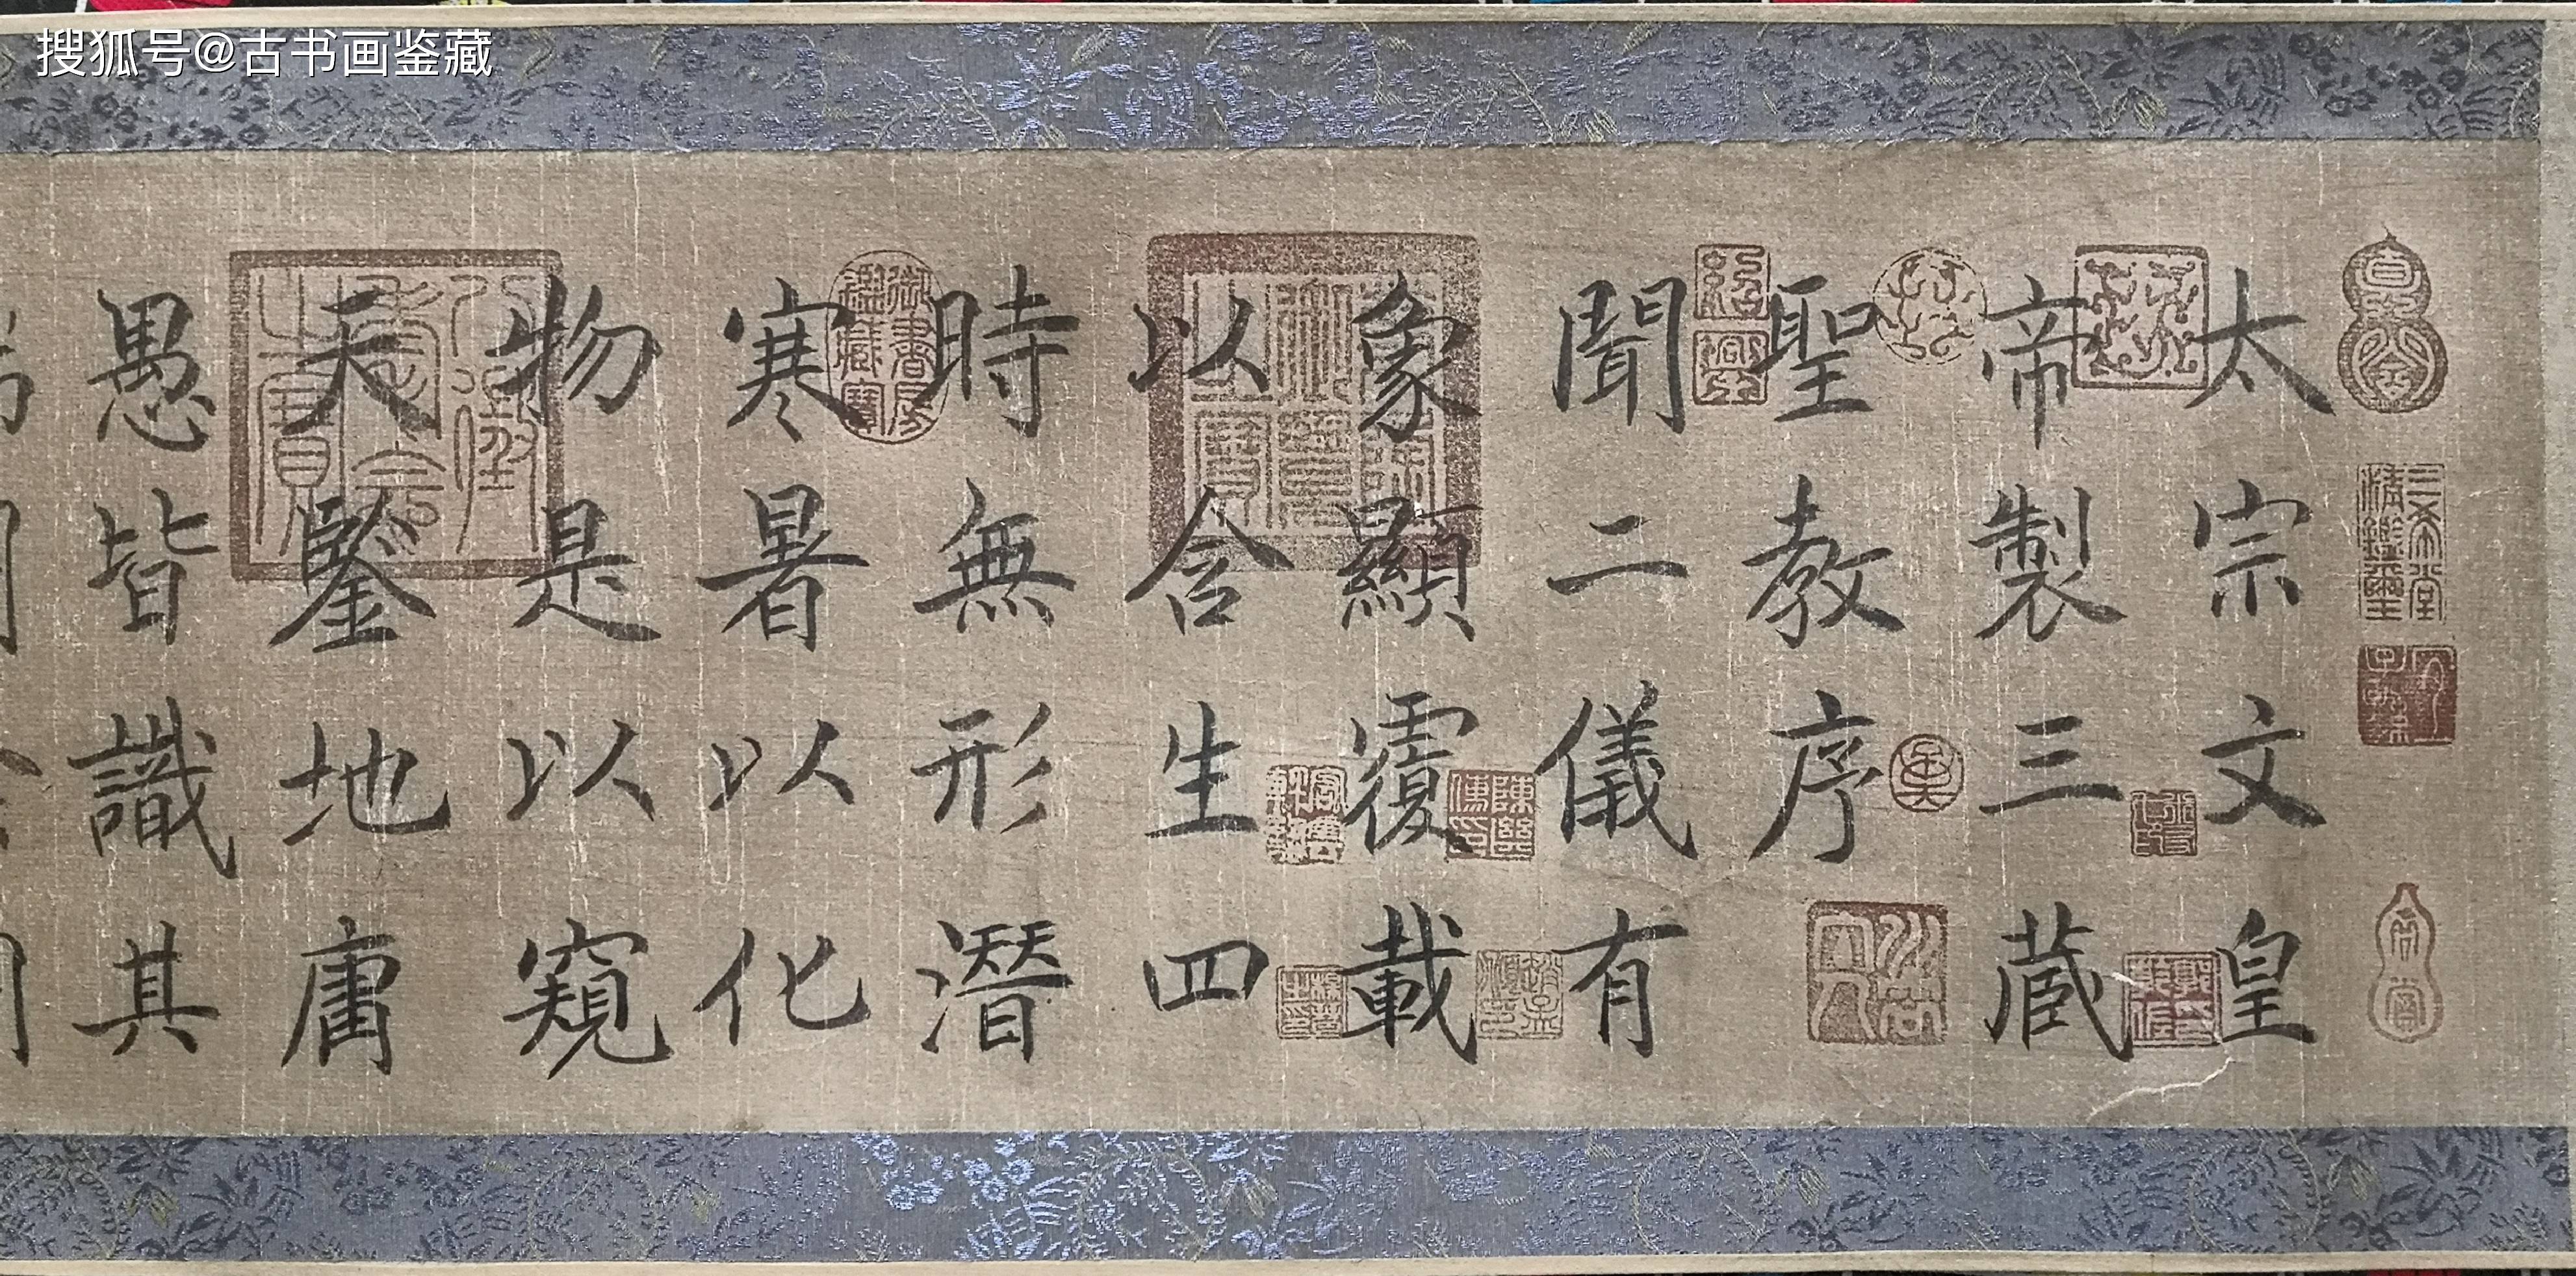 搜狐号@古书画鉴藏
太宗文皇
帝製三蔵
聖教序
聞二儀有
象顯覆載
以含生四
時無形潛
寒暑以化
物是以窺
天鑒地庸
愚皆識其
御書房鑑藏寶
三希堂精鑑璽